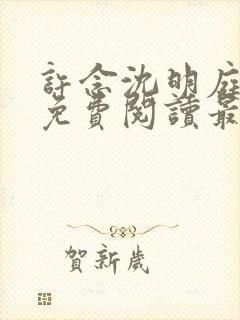 許念沈明庭
免費閱讀最
賀新歲